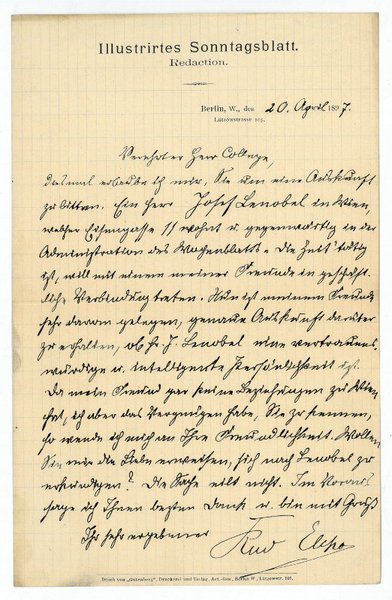 Illustrirtes Sonntagsblatt.
Redaction.
Berlin, W., den 20. April 1897.
Lützowstrasse 105.
Verehrter Herr College,
diesmal erlaube ich mir, Sie um eine Auskunft
zu bitten. Ein Herr Josef Lenobel in Wien,
welcher Eßlinggasse 11 wohnt u. gegenwärtig in der
Administration des Wochenblatts „Die Zeit“ tätig
ist, will mit einem meiner Freunde in geschäft-
liche Verbindung treten. Nun ist meinem Freunde
sehr daran gelegen, genaue Auskunft darüber
zu erhalten, ob Hr J. Lenobel eine vertrauens-
würdige u. intelligente Persönlichkeit ist.
Da mein Freund gar keine Beziehungen zu Wien
hat, ich aber das Vergnügen habe, Sie zu kennen,
so wende ich mich an Ihre Freundlichkeit. Wollen
Sie mir die Liebe erweisen, sich nach Lenobel zu
erkundigen? Die Sache eilt nicht. Im Voraus
sage ich Ihnen besten Dank u. bin mit Gruß
Ihr sehr ergebener
Rud Elcho
Druck von „Gutenberg“, Druckerei und Verlag, Act.-Ges., Berlin W., Lützowstr. 105.